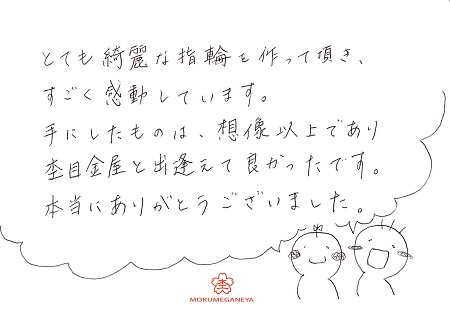 とても綺麗な指輪を作って頂き、
すごく感動しています。
手にしたものは、想像以上であり
杢目金屋と出逢えて良かったです。
本当にありがとうございました。
杢
MOKUMEGANEYA